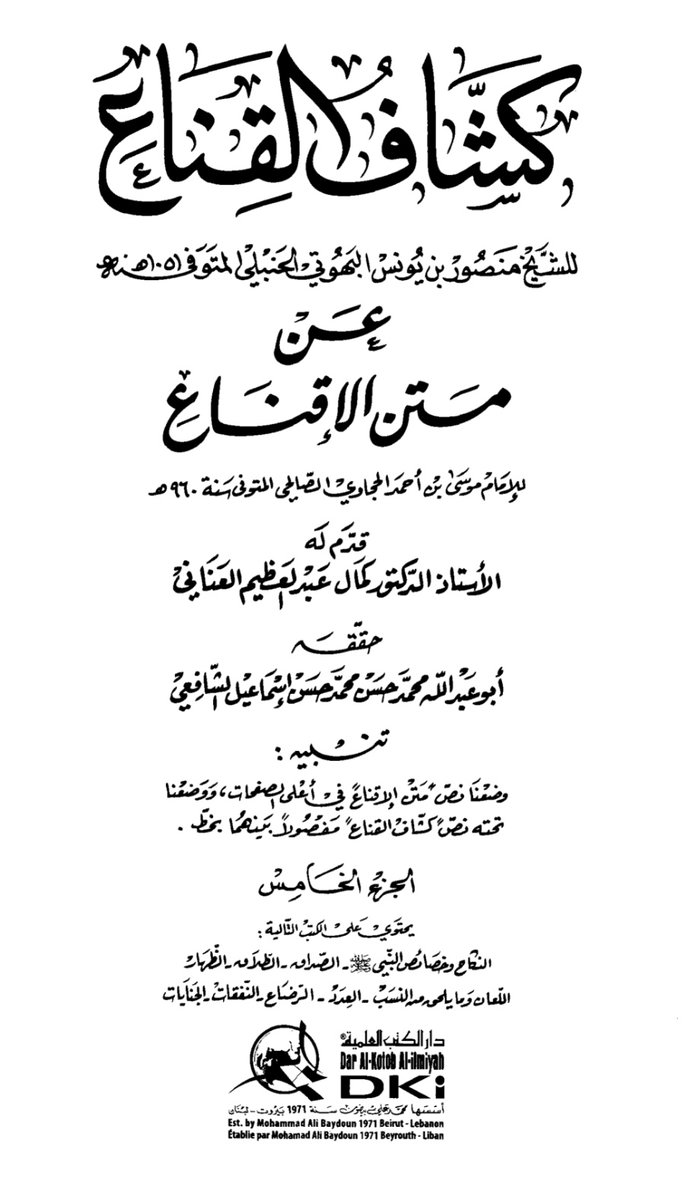 كَشَّافُ القِنَاعِ
للشَّيْخ مَنصُور بن يُونسُ البَهُوتيّ الحَنبَليّ المتوَفى سَنة ١٠٥١هـ
عَنْ
مَتن الإقنَاعِ
للإمَام مُوسَى بن أحمَد الحجاوي الصّالحي المتوفى سَنة ٩٦٠هـ
قدّم لَه
الأستاذ الدكتور كمَال عَبْد العَظيم العنَاني
حقّقه
أبو عَبْد الله محمَّد حَسَن محمَّد حَسَن إسمَاعيل الشّافِعيّ
تنبيه :
وضعنَا نصّ "مَتن الإقناع" في أعلى الصفحات، وَوَضعنا
تحته نصّ "كشّاف القناع" مَفصُولاً بَينهُما بخطّ .
الجزء الخَامِس
يحتوي عَلى الكتب التّالية :
النكاح وخصَائص النّبي ﷺ - الصّداق - الطّلاق - الظّهار
اللّعان وَما يلحق من النّسَب - العِدَد - الرّضَاع - النّفقات - الجنَايات
دار الكتب العلمية®
Dar Al-Kotob Al-ilmiyah
DKi
أسسها محمد علي بيضون سنة 1971 بيروت - لبنان
Est. by Mohammad Ali Baydoun 1971 Beirut - Lebanon
Établie par Mohamad Ali Baydoun 1971 Beyrouth - Liban